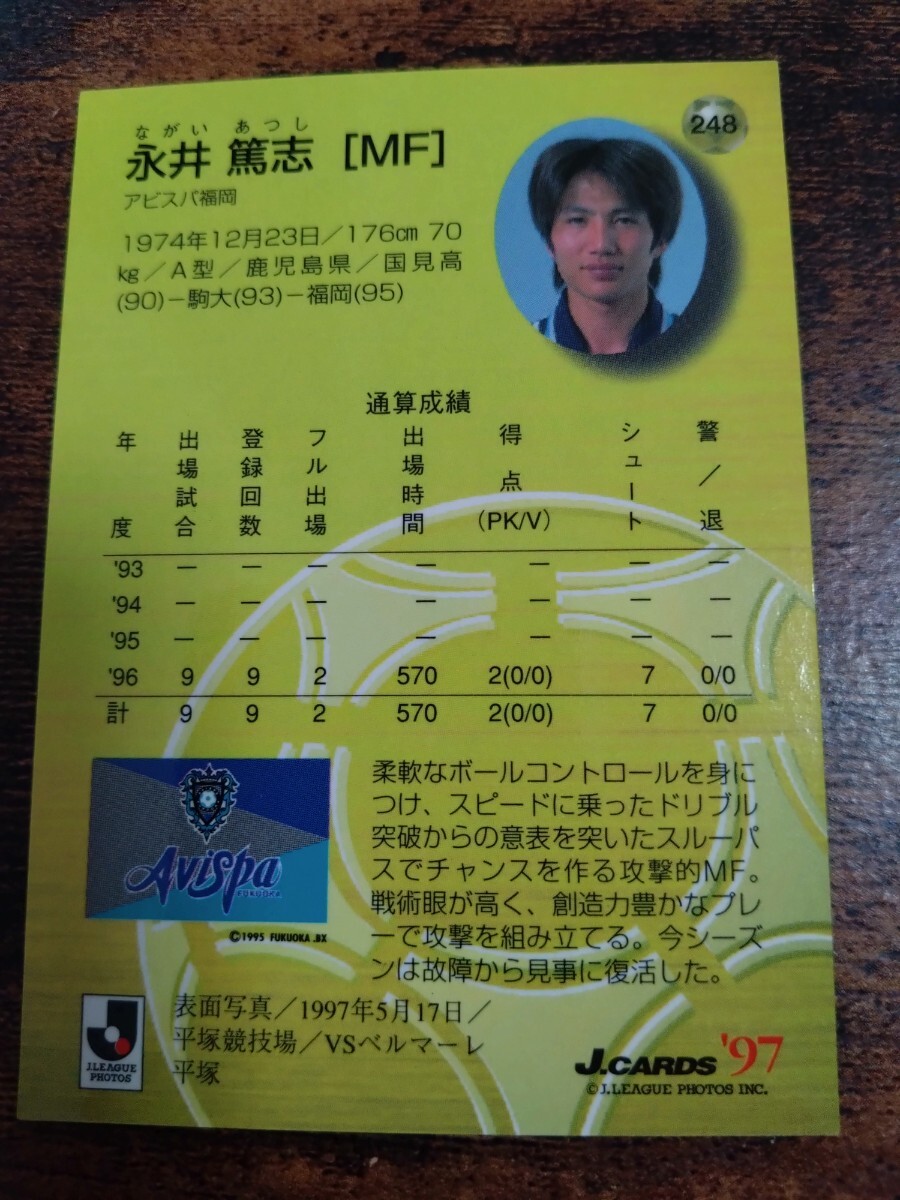 248
ながい あつし
永井 篤志 [MF]
アビスパ福岡
1974年12月23日/176cm 70
kg/A型/鹿児島県/国見高
(90)-駒大(93)-福岡(95)
通算成績
年度 出場試合 登録回数 フル出場 出場時間 得点(PK/V) シュート 警/退
'93 ー ー ー ー ー ー ー
'94 ー ー ー ー ー ー ー
'95 ー ー ー ー ー ー ー
'96 9 9 2 570 2(0/0) 7 0/0
計 9 9 2 570 2(0/0) 7 0/0
柔軟なボールコントロールを身に
つけ、スピードに乗ったドリブル
突破からの意表を突いたスルーパ
スでチャンスを作る攻撃的MF。
戦術眼が高く、創造力豊かなプレ
ーで攻撃を組み立てる。今シーズ
ンは故障から見事に復活した。
Avispa
FUKUOKA
©1995 FUKUOKA .BX
表面写真/1997年5月17日/
平塚競技場/VSベルマーレ
平塚
J.LEAGUE
PHOTOS
J.CARDS '97
©J.LEAGUE PHOTOS INC.